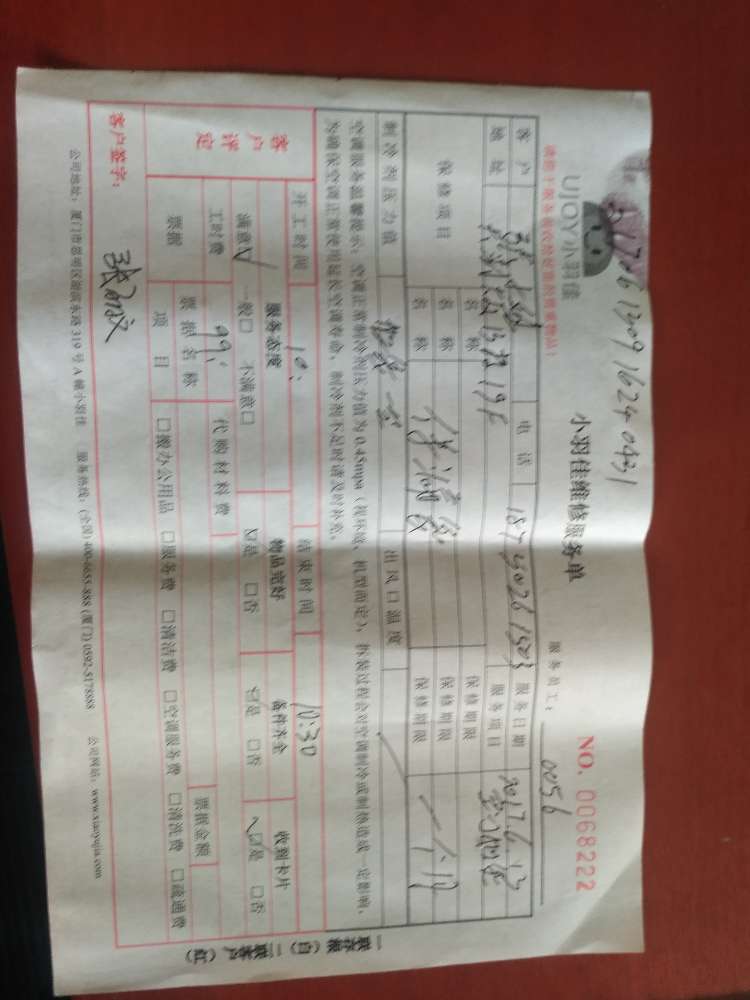 201706130916240431
UJOY小羽佳
小羽佳维修服务单
NO. 0068222
请您于服务前收检您的贵重物品!
服务员工: 0056
客户 电话 服务日期 2017.6.13
地址 服务项目
保修项目 名称 保修期限
名称 保修期限
名称 保修期限 一个月
制冷剂压力值 出风口温度
空调服务温馨提示: 空调正常制冷剂压力值为0.45mpa (视环境、机型而定), 拆装过程会对空调制冷或制热造成一定影响,
为确保空调正常使用延长空调寿命, 制冷剂不足时请及时补充。
客户评定
开工时间 10: 结束时间 10:30
服务态度 物品完好 备件齐全 收到卡片
满意☑ 一般□ 不满意□ ☑是 □否 ☑是 □否 ☑是 □否
工时费 99. 代购材料费 票据金额
票据 票据名称
项目 □搬办公用品 □服务费 □清洁费 □空调服务费 □清洗费 □疏通费
客户签字:
公司地址: 厦门市思明区湖滨东路319号A幢小羽佳 服务热线: (全国) 400-6655-888 (厦门) 0592-5178888 公司网站: www.xiaoyujia.com
一联存根 (白) 二联客户 (红)